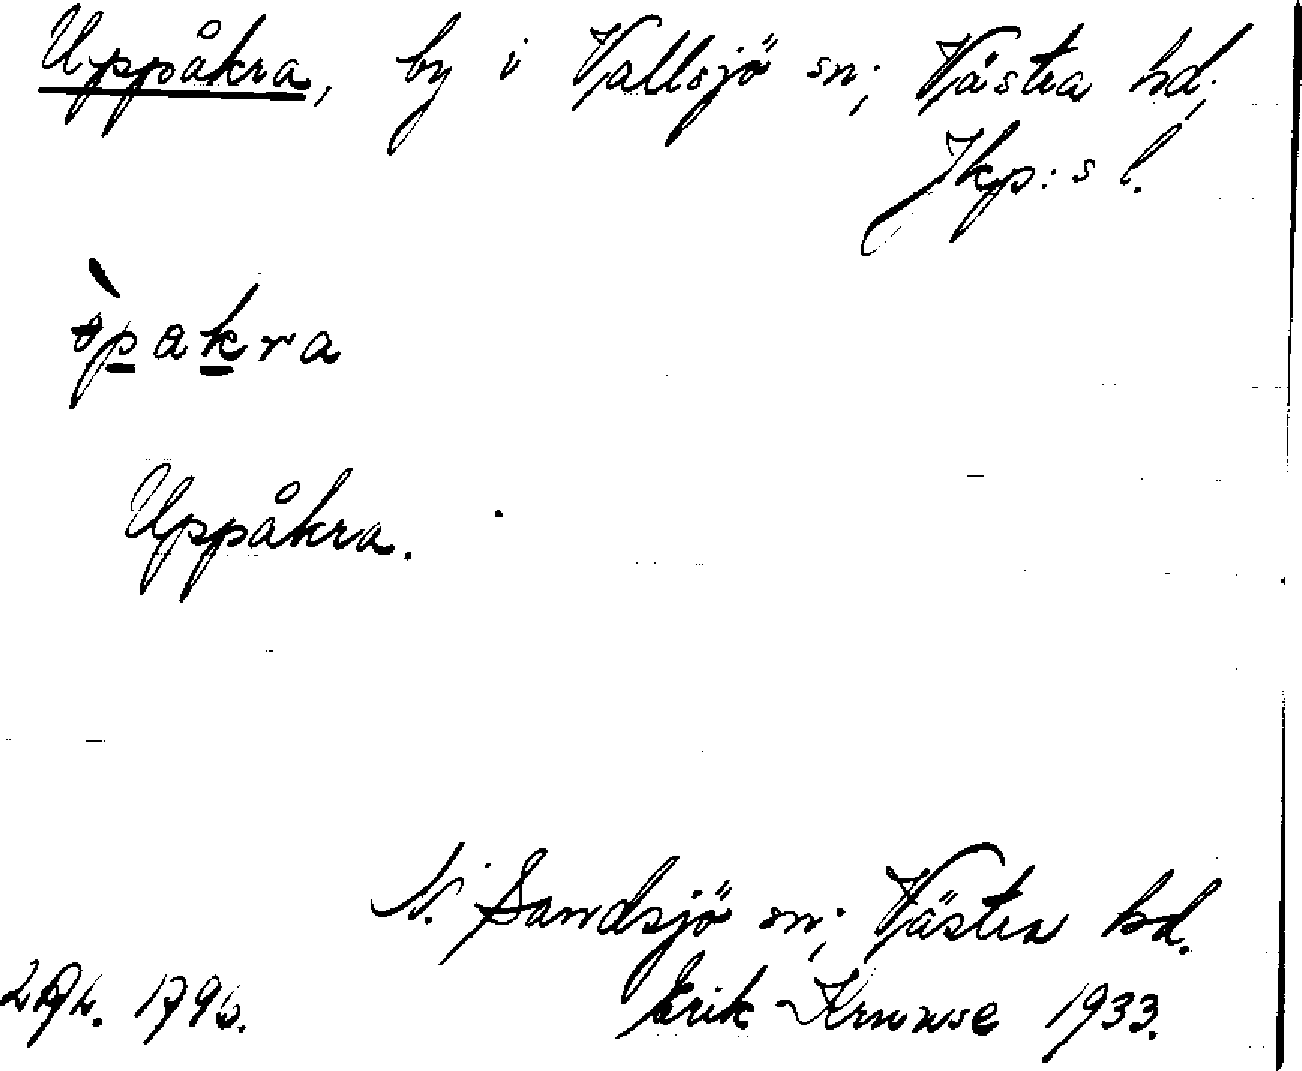 Uppåkra, by i Vallsjö sn; Västra hd;
Jkp:s l.
òpakra
Uppåkra.
N. Sandsjö sn; Västra hd.
Erik
1933.